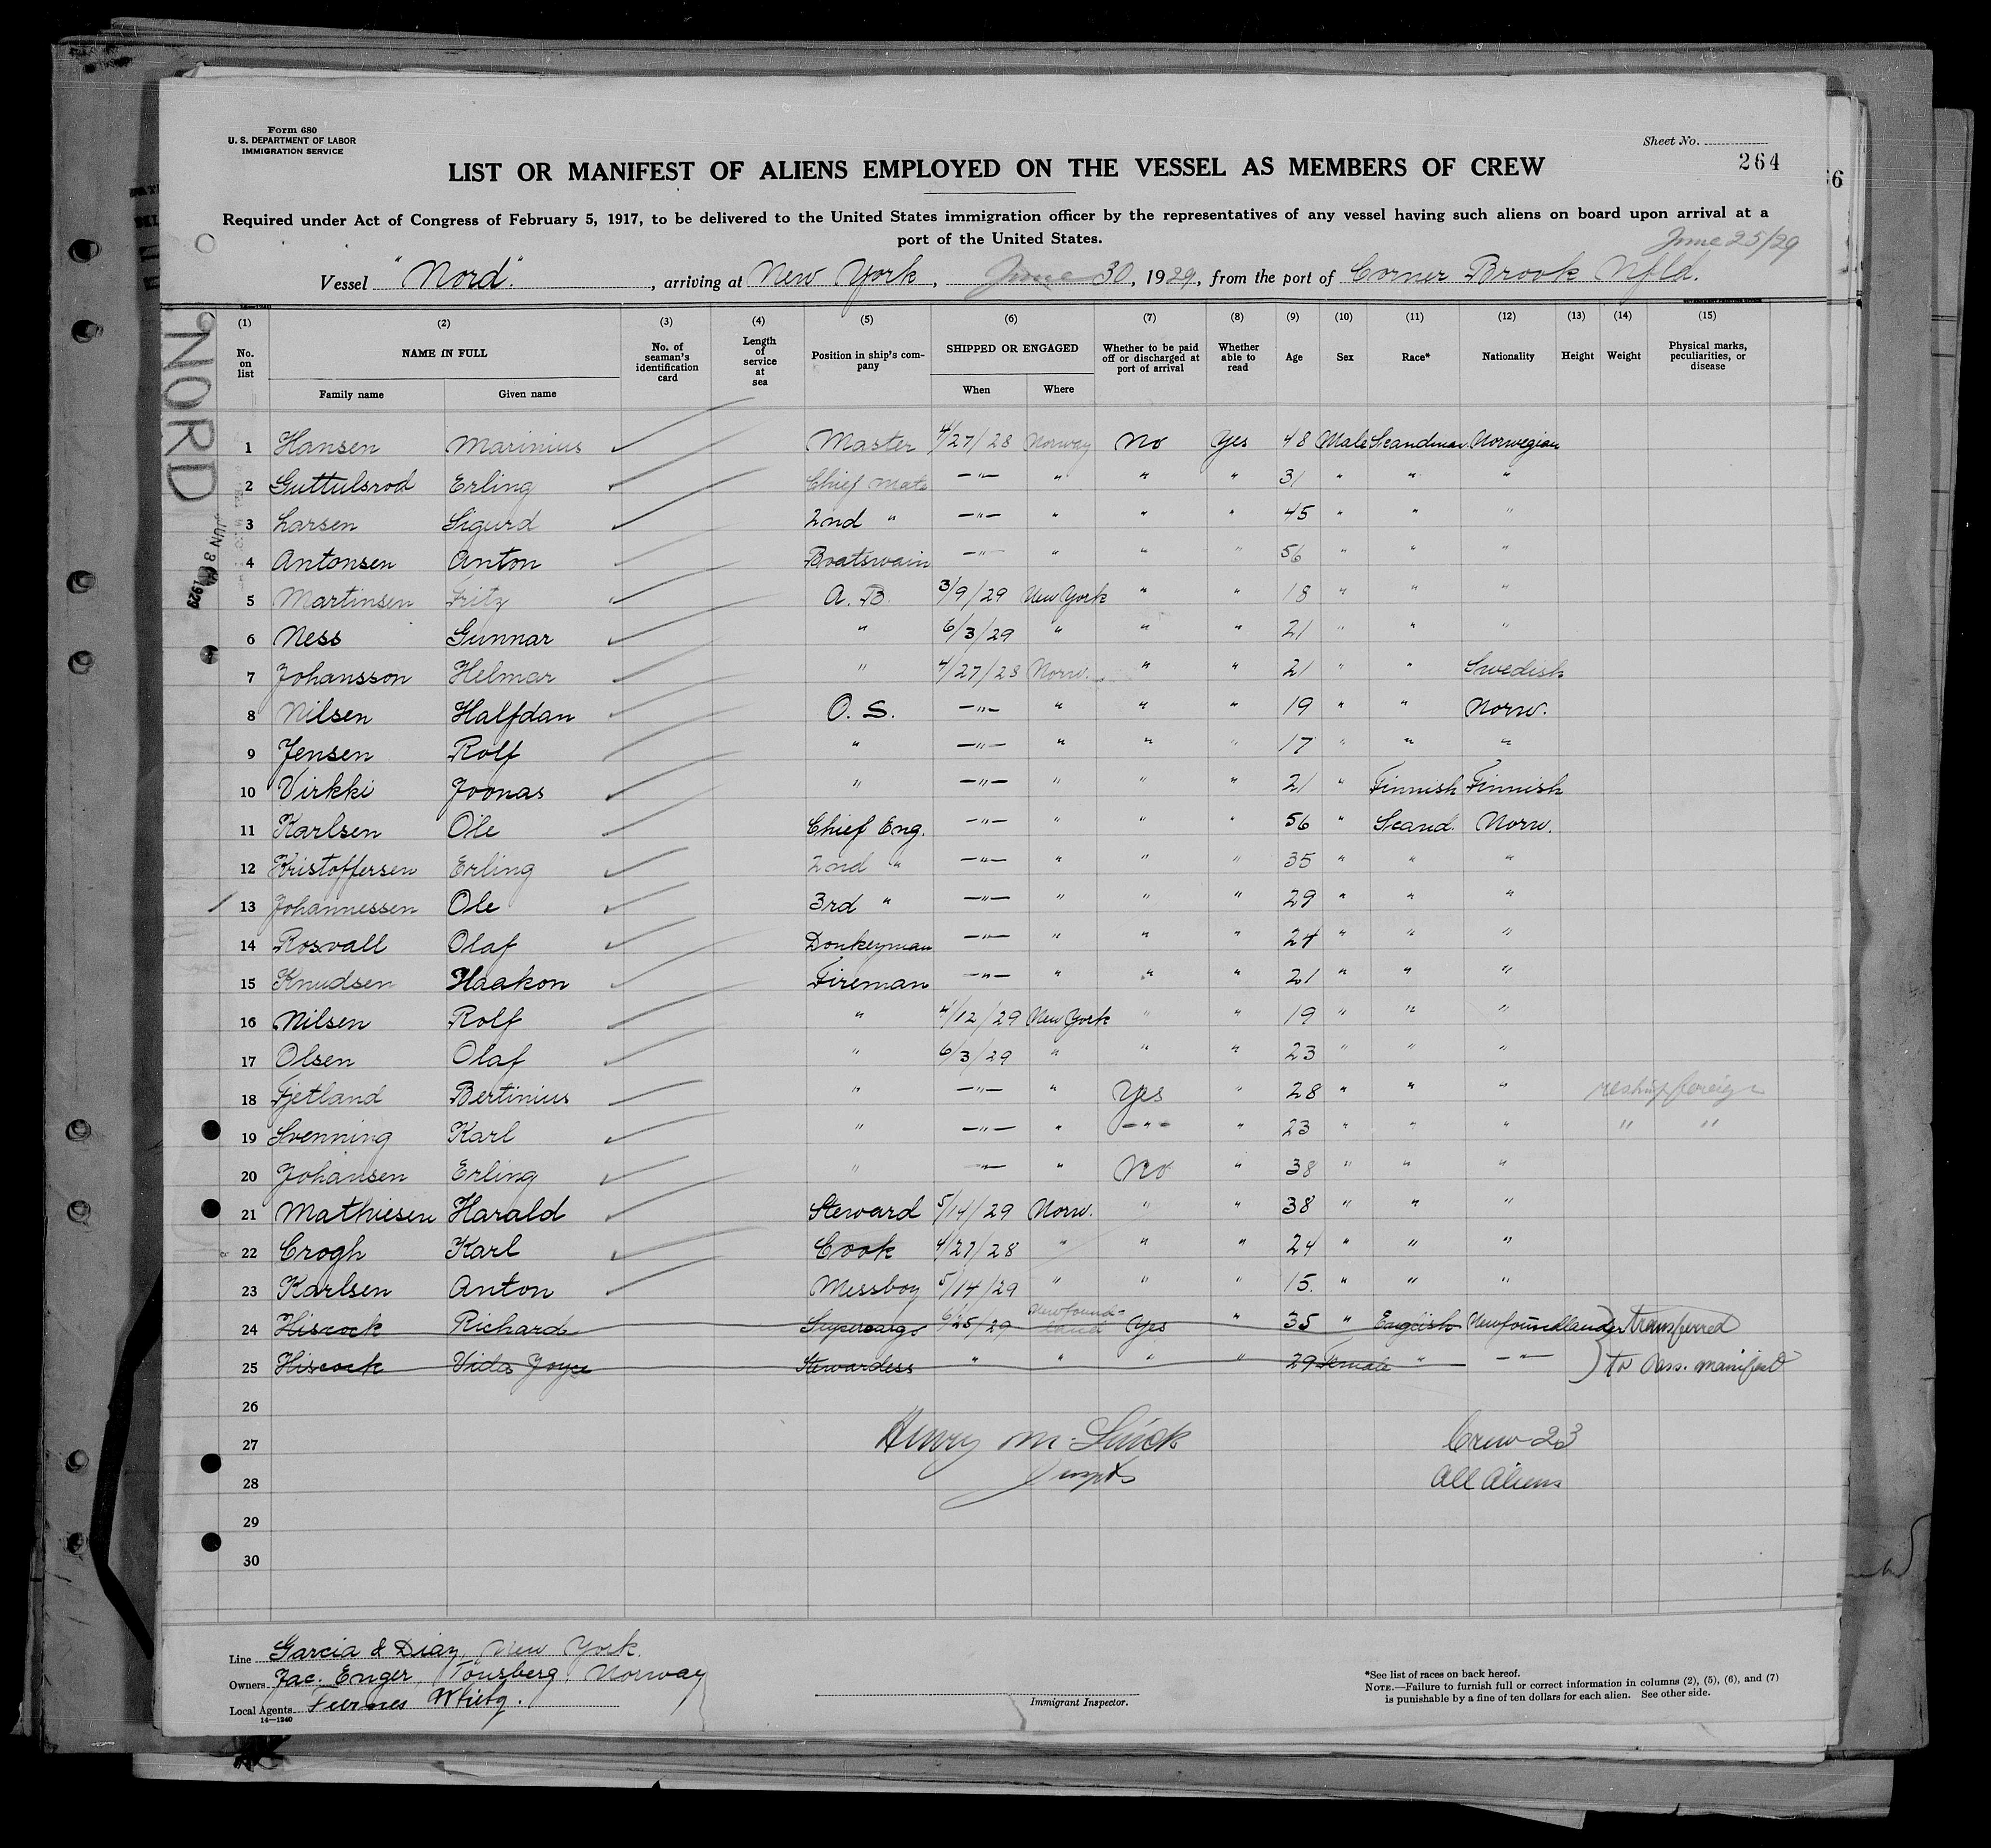 Form 680
U. S. DEPARTMENT OF LABOR
IMMIGRATION SERVICE
Sheet No.
264
LIST OR MANIFEST OF ALIENS EMPLOYED ON THE VESSEL AS MEMBERS OF CREW
Required under Act of Congress of February 5, 1917, to be delivered to the United States immigration officer by the representatives of any vessel having such aliens on board upon arrival at a
port of the United States.
June 25/29
Vessel "Nord", arriving at New York, June 30, 1929, from the port of Corner Brook Nfld.
NORD
JUN 30 1929
(1) (2) (3) (4) (5) (6) (7) (8) (9) (10) (11) (12) (13) (14) (15)
No. on list NAME IN FULL No. of seaman's identification card Length of service at sea Position in ship's company SHIPPED OR ENGAGED Whether to be paid off or discharged at port of arrival Whether able to read Age Sex Race* Nationality Height Weight Physical marks, peculiarities, or disease
Family name Given name When Where
1 Hansen Marinius Master 4/27/28 Norway No Yes 48 Male Scandinav. Norwegian
2 Guttulsrod Erling Chief Mate —"— " " " 31 " " "
3 Larsen Sigurd 2nd " —"— " " " 45 " " "
4 Antonsen Anton Boatswain —"— " " " 56 " " "
5 Martinsen Fritz A. B. 3/9/29 New York " " 18 " " "
6 Ness Gunnar " 6/3/29 " " " 21 " " "
7 Johansson Helmar " 4/27/28 Norw. " " 21 " " Swedish
8 Nilsen Halfdan O. S. —"— " " " 19 " " Norw.
9 Jensen Rolf " —"— " " " 17 " " "
10 Virkki Joonas " —"— " " " 21 " Finnish Finnish
11 Karlsen Ole Chief Eng. —"— " " " 56 " Scand. Norw.
12 Kristoffersen Erling 2nd " —"— " " " 35 " " "
13 Johannessen Ole 3rd " —"— " " " 29 " " "
14 Rosvall Olaf Donkeyman —"— " " " 24 " " "
15 Knudsen Haakon Fireman —"— " " " 21 " " "
16 Nilsen Rolf " 4/12/29 New York " " 19 " " "
17 Olsen Olaf " 6/3/29 " " " 23 " " "
18 Fjetland Bertinius " —"— " Yes " 28 " " " reship foreign
19 Svenning Karl " —"— " —"— " 23 " " " " "
20 Johansen Erling " —"— " No " 38 " " "
21 Mathiesen Harald Steward 5/14/29 Norw. " " 38 " " "
22 Crogh Karl Cook 4/27/28 " " " 24 " " "
23 Karlsen Anton Messboy 5/14/29 " " " 15. " " "
24 Hiscock Richard Supercargo 6/25/29 Newfound-land Yes " 35 " English Newfoundlander transferred
25 Hiscock Vida Joyce Stewardess " " " " 29 Female " —"— to Pass. manifest
26
27 Henry M. Crew 23
28 All Aliens
29
30
Line Garcia & Diaz, New York.
Owners Jac. Enger, Tönsberg, Norway
Local Agents Furness Withy.
14—1240
Immigrant Inspector.
*See list of races on back hereof.
NOTE.—Failure to furnish full or correct information in columns (2), (5), (6), and (7)
is punishable by a fine of ten dollars for each alien. See other side.